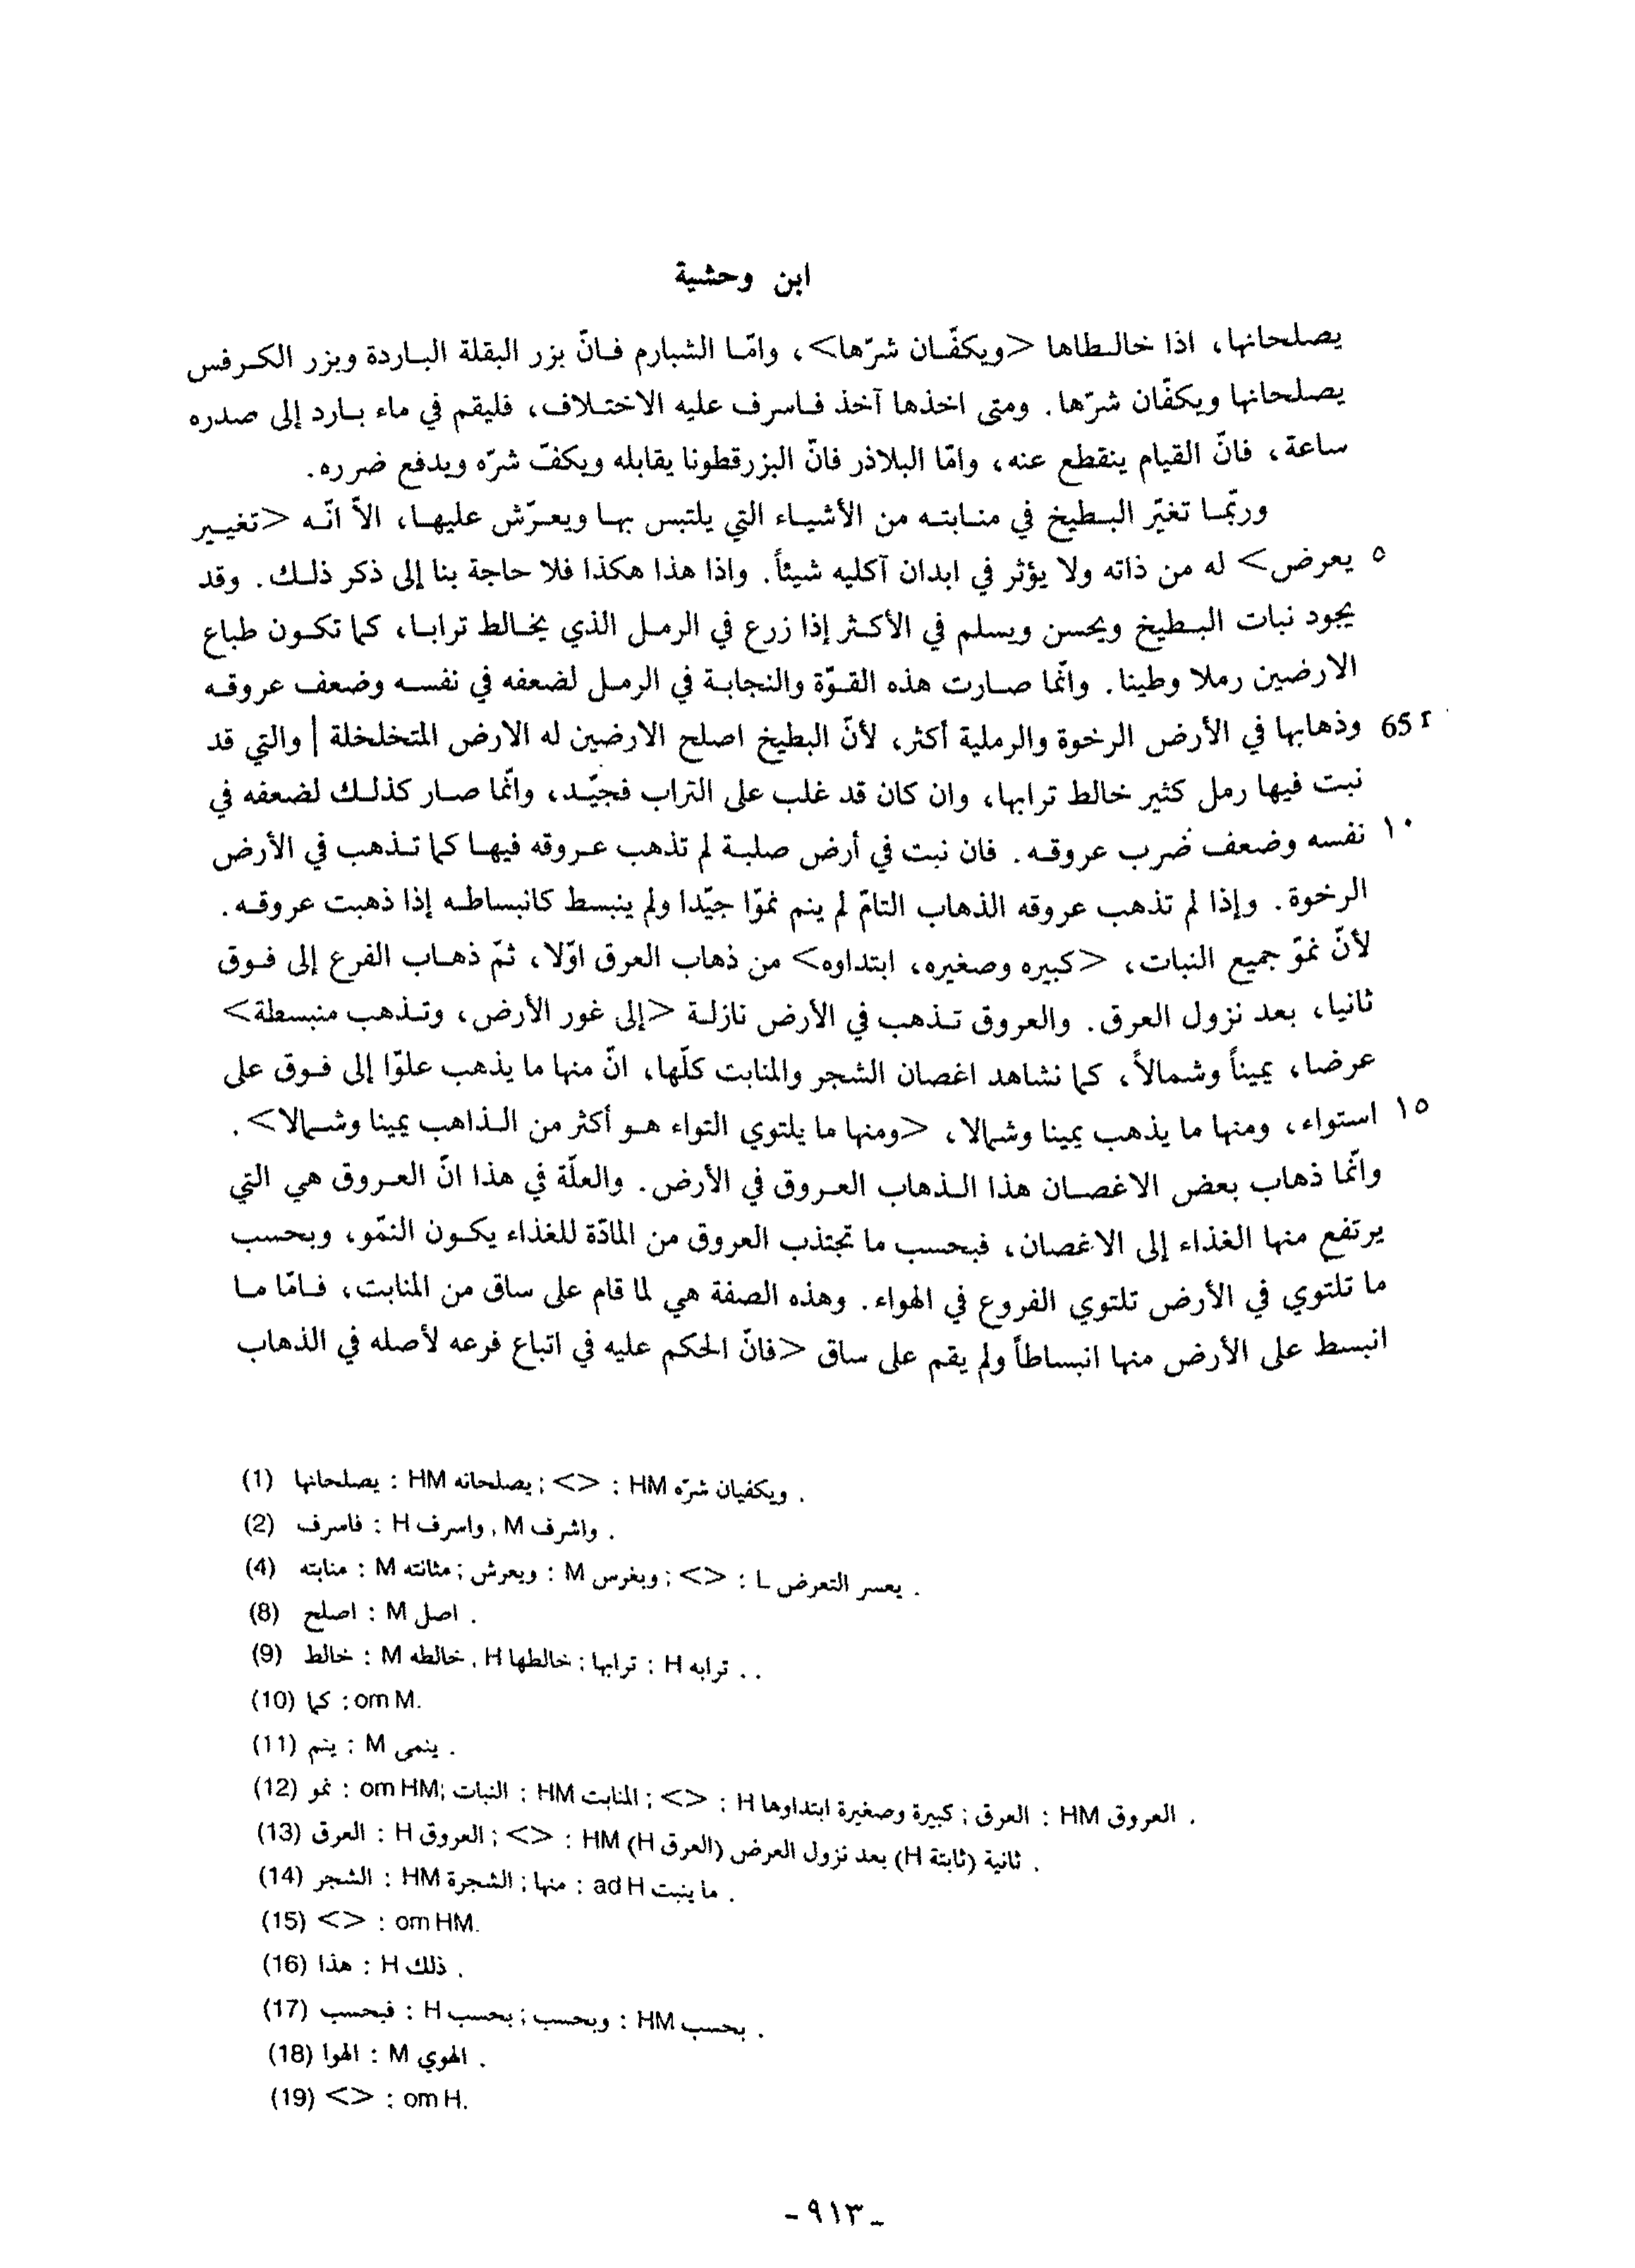 ابن وحشية
يصلحانها، اذا خالطاها <ويكفّان شرّها>، وامّا الشبارم فانّ بزر البقلة الباردة وبزر الكرفس
يصلحانها ويكفّان شرّها. ومتى اخذها آخذ فاسرف عليه الاختلاف، فليقم في ماء بارد إلى صدره
ساعة، فانّ القيام ينقطع عنه، وامّا البلاذر فانّ البزرقطونا يقابله ويكفّ شرّه ويدفع ضرره.
وربّما تغيّر البطيخ في منابته من الأشياء التي يلتبس بها ويعرّش عليها، الاّ انّه <تغيير
٥ يعرض> له من ذاته ولا يؤثر في ابدان آكليه شيئاً. واذا هذا هكذا فلا حاجة بنا إلى ذكر ذلك. وقد
يجود نبات البطيخ ويحسن ويسلم في الأكثر إذا زرع في الرمل الذي يخالط ترابا، كما تكون طباع
الارضين رملا وطينا. وانّما صارت هذه القوّة والنجابة في الرمل لضعفه في نفسه وضعف عروقه
65 r وذهابها في الأرض الرخوة والرملية أكثر، لأنّ البطيخ اصلح الارضين له الارض المتخلخلة | والتي قد
نبت فيها رمل كثير خالط ترابها، وان كان قد غلب على التراب فجيّد، وانّما صار كذلك لضعفه في
١٠ نفسه وضعف ضرب عروقه. فان نبت في أرض صلبة لم تذهب عروقه فيها كما تذهب في الأرض
الرخوة. وإذا لم تذهب عروقه الذهاب التامّ لم ينم نموّا جيّدا ولم ينبسط كانبساطه إذا ذهبت عروقه.
لأنّ نموّ جميع النبات، <كبيره وصغيره، ابتداوه> من ذهاب العرق اوّلا، ثمّ ذهاب الفرع إلى فوق
ثانيا، بعد نزول العرق. والعروق تذهب في الأرض نازلة <إلى غور الأرض، وتذهب منبسطة>
عرضا، يميناً وشمالاً، كما نشاهد اغصان الشجر والمنابت كلّها، انّ منها ما يذهب علوّا إلى فوق على
١٥ استواء، ومنها ما يذهب يمينا وشمالا، <ومنها ما يلتوي التواء هو أكثر من الذاهب يمينا وشمالا>.
وانّما ذهاب بعض الاغصان هذا الذهاب العروق في الأرض. والعلّة في هذا انّ العروق هي التي
يرتفع منها الغذاء إلى الاغصان، فبحسب ما تجتذب العروق من المادّة للغذاء يكون النمّو، وبحسب
ما تلتوي في الأرض تلتوي الفروع في الهواء. وهذه الصفة هي لما قام على ساق من المنابت، فامّا ما
انبسط على الأرض منها انبساطاً ولم يقم على ساق <فانّ الحكم عليه في اتباع فرعه لأصله في الذهاب
(1) يصلحانها : HM يصلحانه ; <> : HM ويكفيان شرّه .
(2) فاسرف : H واسرف , M واشرف .
(4) منابته : M مثانته ; ويعرش : M وبغرس ; <> : L يعسر التعرض .
(8) اصلح : M اصل .
(9) خالط : M خالطه , H خالطها ; ترابها : H ترابه . .
(10) كما : om M.
(11) ينم : M ينمى .
(12) نمو : om HM; النبات : HM المنابت ; <> : H كبيرة وصغيرة ابتداوها ; العرق : HM العروق .
(13) العرق : H العروق ; <> : HM (H العرق) ثانية (ثابتة H) بعد نزول العرض .
(14) الشجر : HM الشجرة ; منها : ad H ما ينبت .
(15) <> : om HM.
(16) هذا : H ذلك .
(17) فبحسب : H بحسب ; وبحسب : HM بحسب .
(18) الهوا : M الهوي .
(19) <> : om H.
- ٩١٣ -